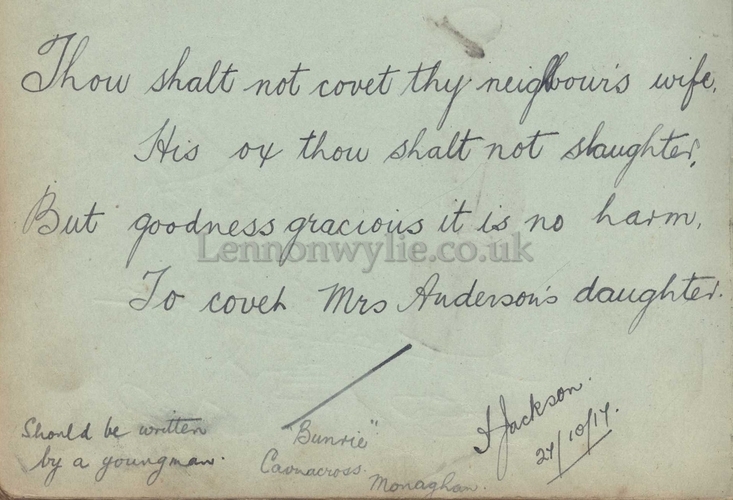 Thou shalt not covet thy neighbour's wife,
His ox thou shalt not slaughter,
But goodness gracious it is no harm,
To covet Mrs Anderson's daughter.
Lennonwylie.co.uk
Should be written
by a youngman.
"Bunrie"
Cavnacross.
Monaghan.
Jackson.
/10/17.